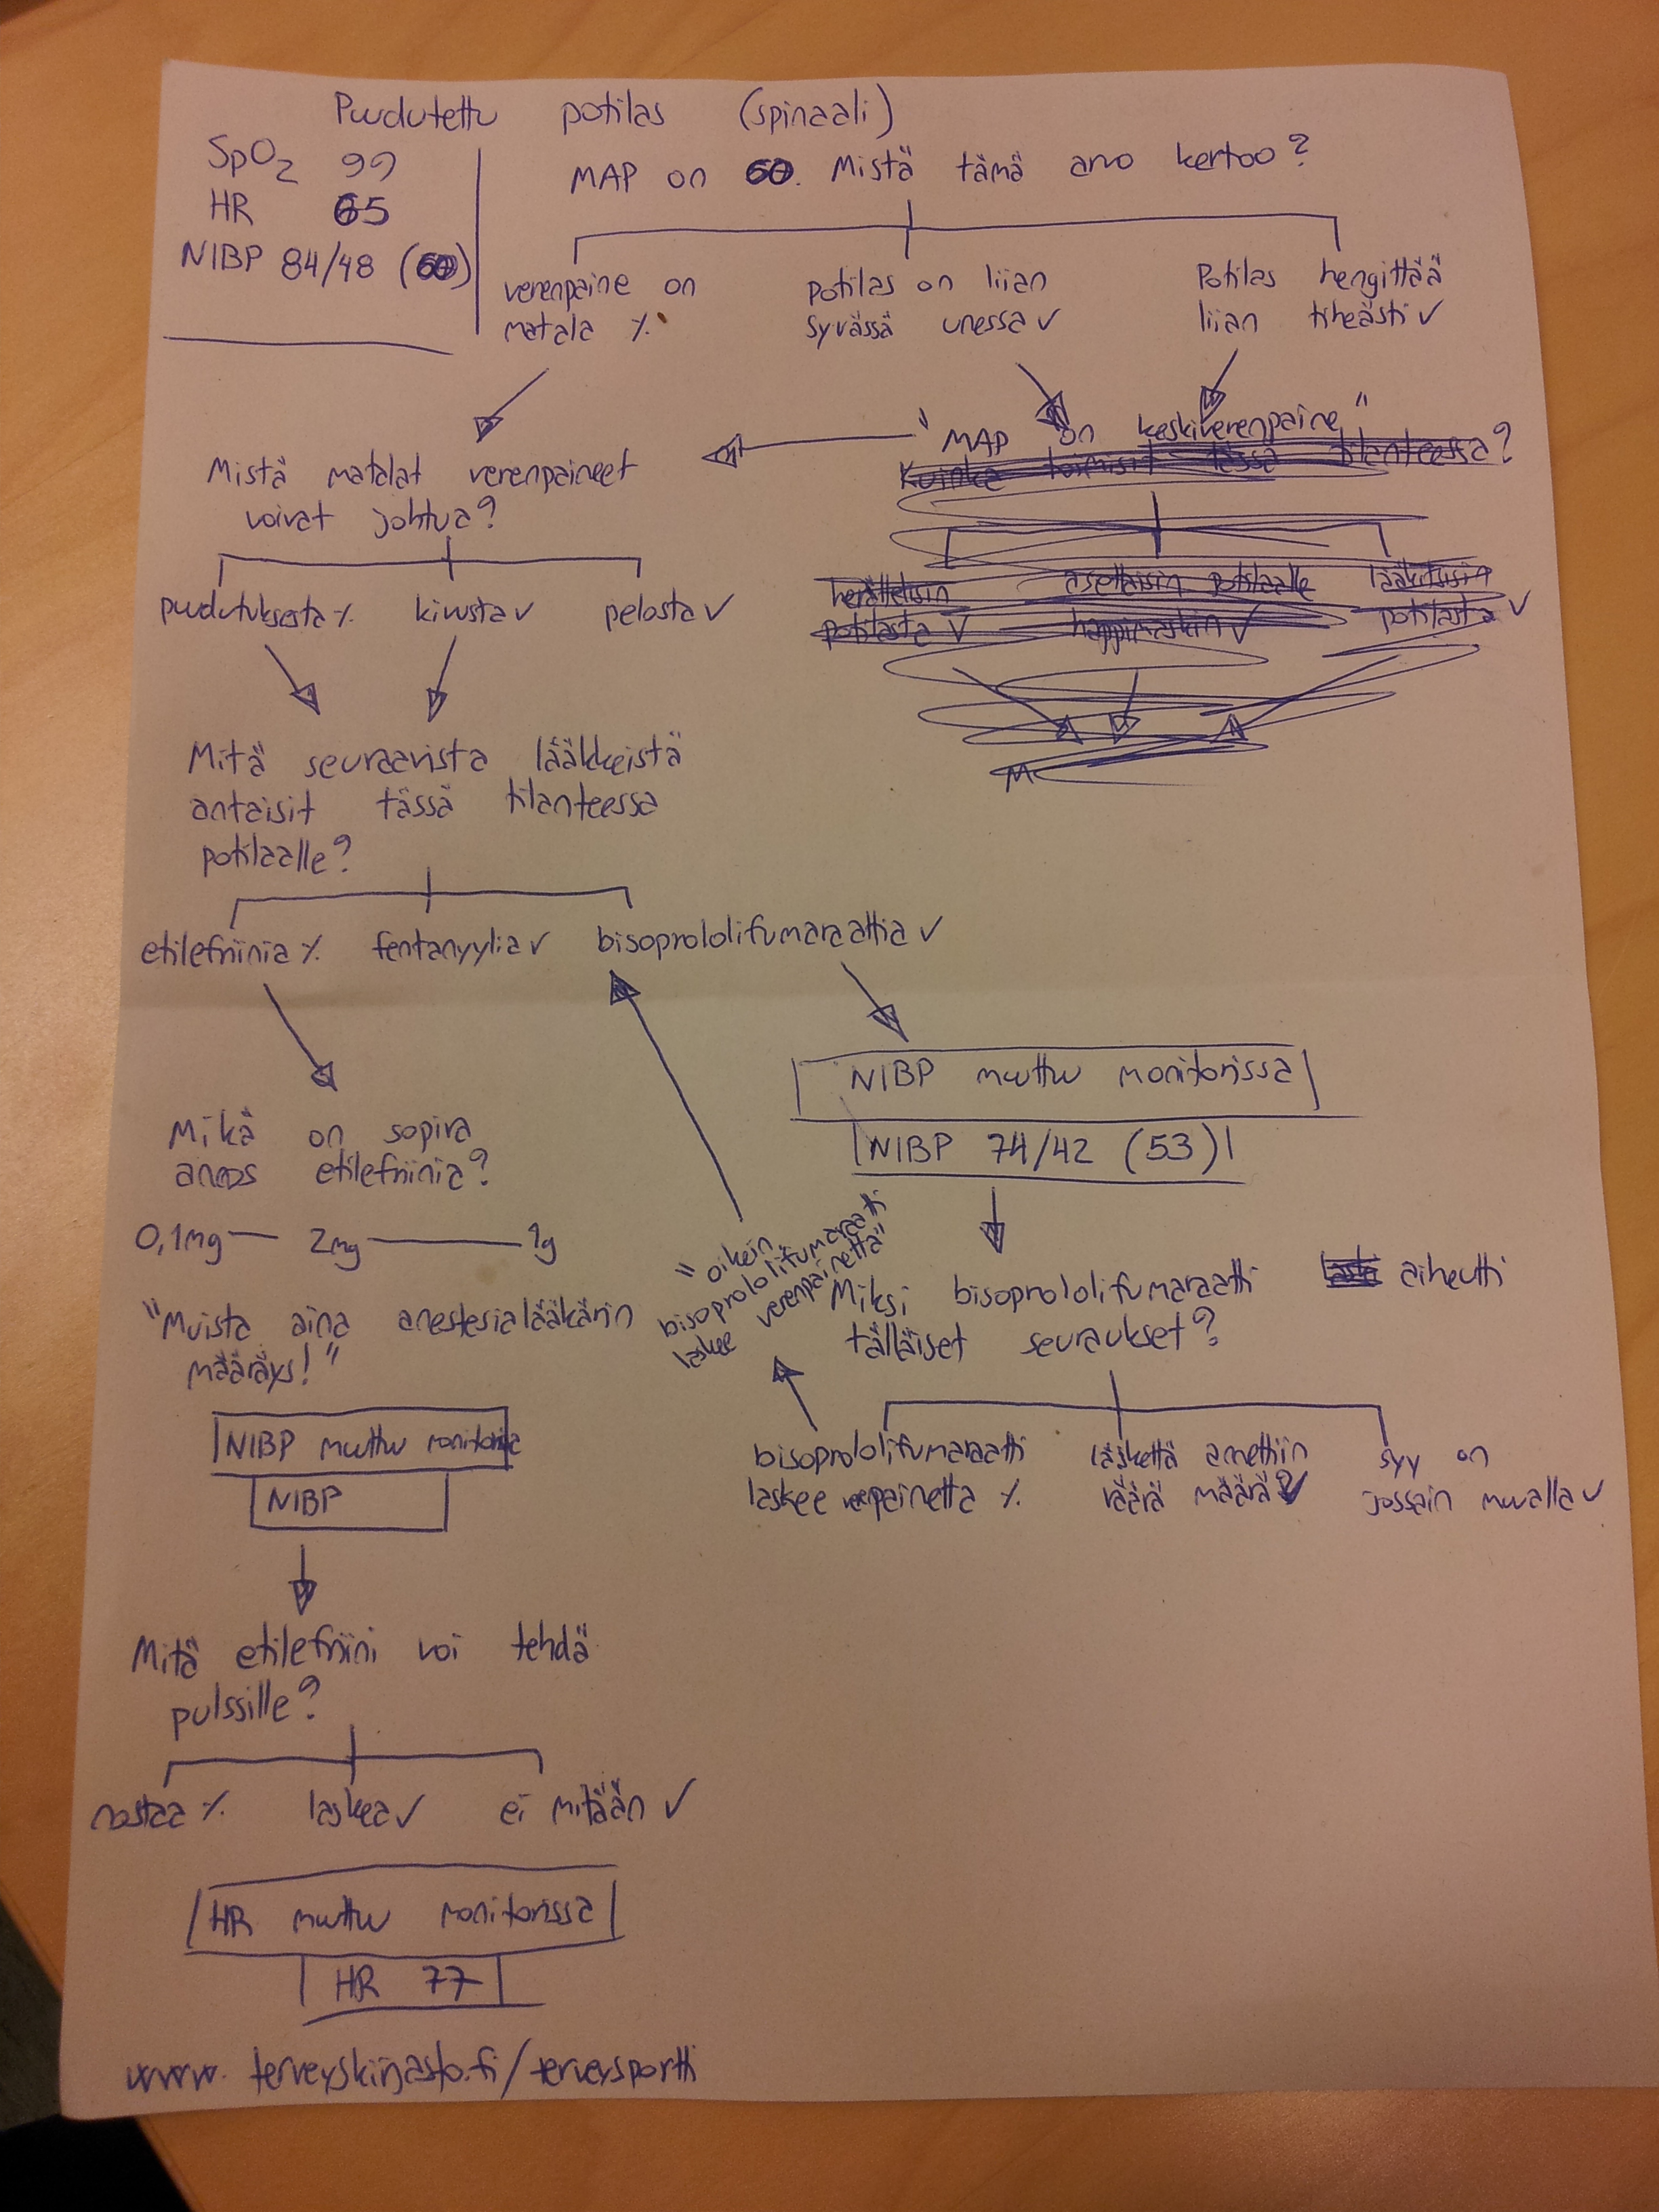 Puudutettu potilas (spinaali)
SpO2 99
HR 65
NIBP 84/48 (60)
MAP on 60. Mistä tämä arvo kertoo?
verenpaine on
matala ٪
potilas on liian
syvässä unessa ✓
Potilas hengittää
liian tiheästi ✓
"MAP on keskiverenpaine"
Kuinka toimisit tässä tilanteessa?
herättelisin
potilasta ✓
asettaisin potilaalle
happimaskin ✓
lääkitsisin
potilasta ✓
M
Mistä matalat verenpaineet
voivat johtua?
puudutuksesta ٪ kivusta ✓ pelosta ✓
Mitä seuraavista lääkkeistä
antaisit tässä tilanteessa
potilaalle?
etilefriinia ٪ fentanyylia ✓ bisoprololifumaraattia ✓
NIBP muuttuu monitorissa
NIBP 74/42 (53)
Miksi bisoprololifumaraatti aiheutti
tälläiset seuraukset?
bisoprololifumaraatti
laskee verenpainetta ٪
lääkettä annettiin
väärä määrä ✓
syy on
jossain muualla ✓
"oikein
bisoprololifumaraatti
laskee verenpainetta"
Mikä on sopiva
annos etilefriinia?
0,1mg — 2mg — 1g
"Muista aina anestesialääkärin
määräys!"
NIBP muuttuu monitorissa
NIBP
Mitä etilefriini voi tehdä
pulssille?
nostaa ٪ laskea ✓ ei mitään ✓
HR muuttuu monitorissa
HR 77
www.terveyskirjasto.fi/terveysportti